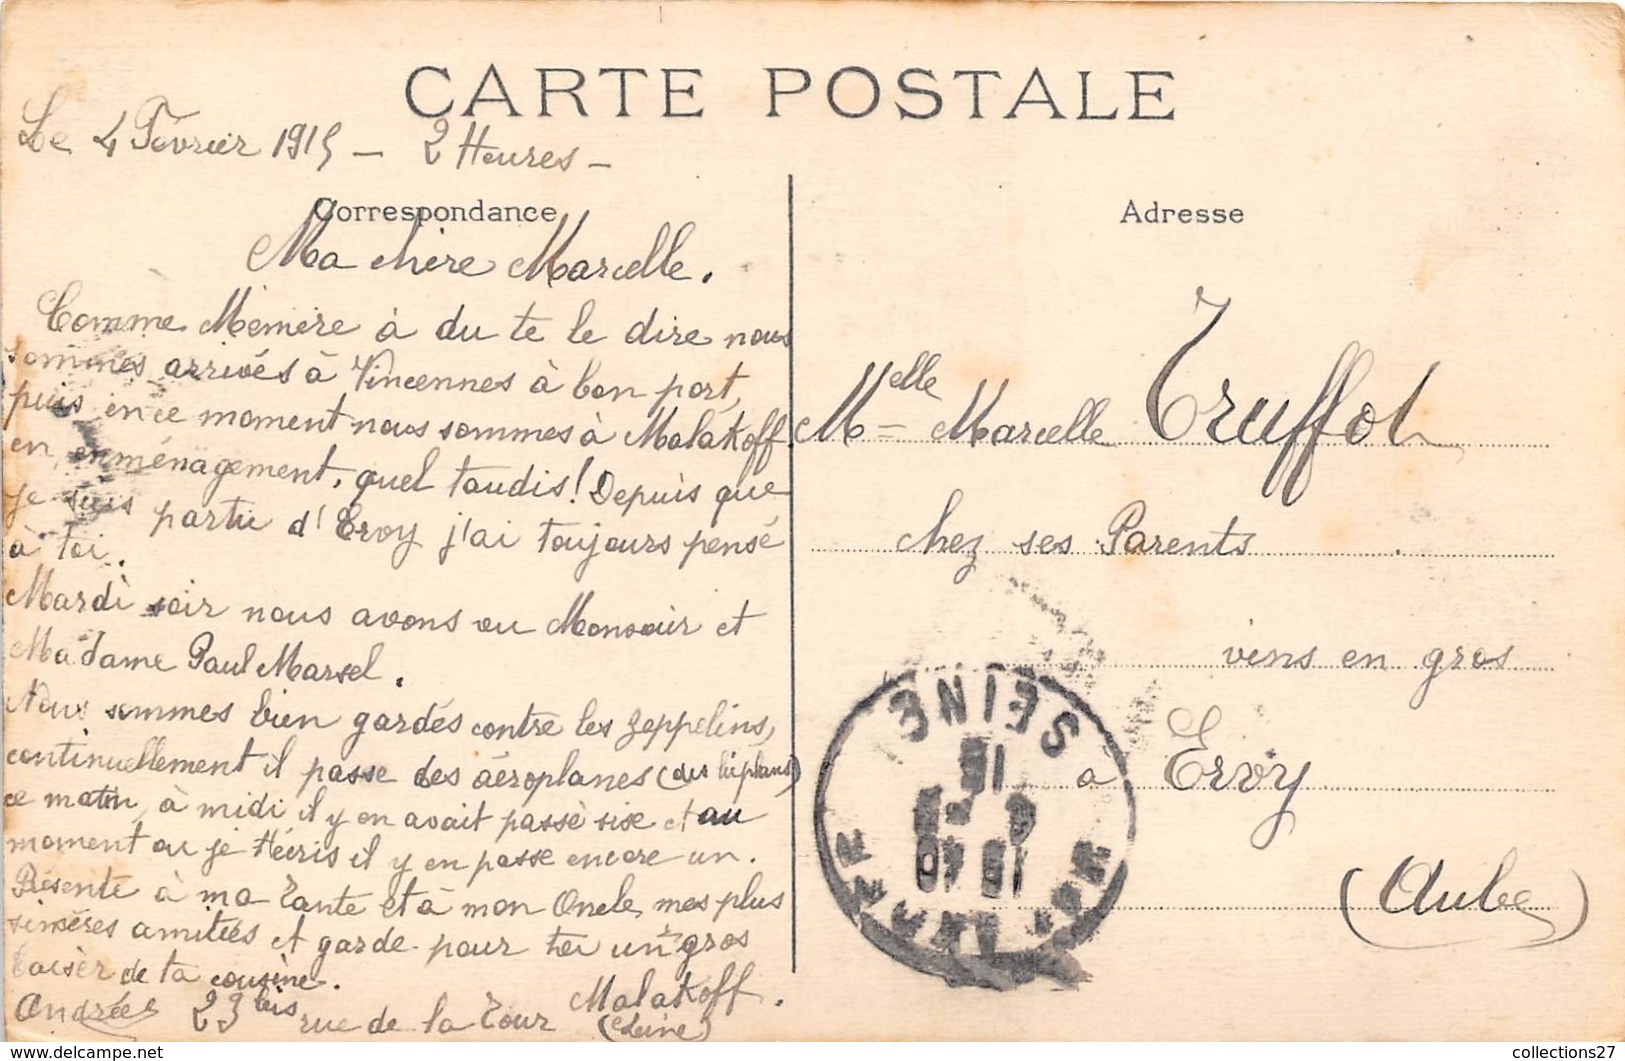 CARTE POSTALE
Le 4 Février 1915 – 2 Heures –
Correspondance
Ma chère Marcelle.
Comme Mémère à du te le dire nous
sommes arrivés à Vincennes à bon port,
puis en ce moment nous sommes à Malakoff.
en enménagement, quel taudis! Depuis que
je suis partie d'Ervy j'ai toujours pensé
à toi.
Mardi soir nous avons vu Monsieur et
Madame Paul Marsel.
Nous sommes bien gardés contre les zeppelins,
continuellement il passe des aéroplanes (des biplans)
ce matin, à midi il y en avait passé sise et au
moment ou je t'écris il y en passe encore un.
Présente à ma Tante et à mon Oncle, mes plus
sincères amitiés et garde pour toi un gros
baiser de ta cousine.
Andrée 23 bis rue de la Tour Malakoff.
(Seine)
Adresse
Melle Marcelle Truffot
chez ses Parents
vins en gros
a Ervy
(Aube)
SEINE
15
collections27